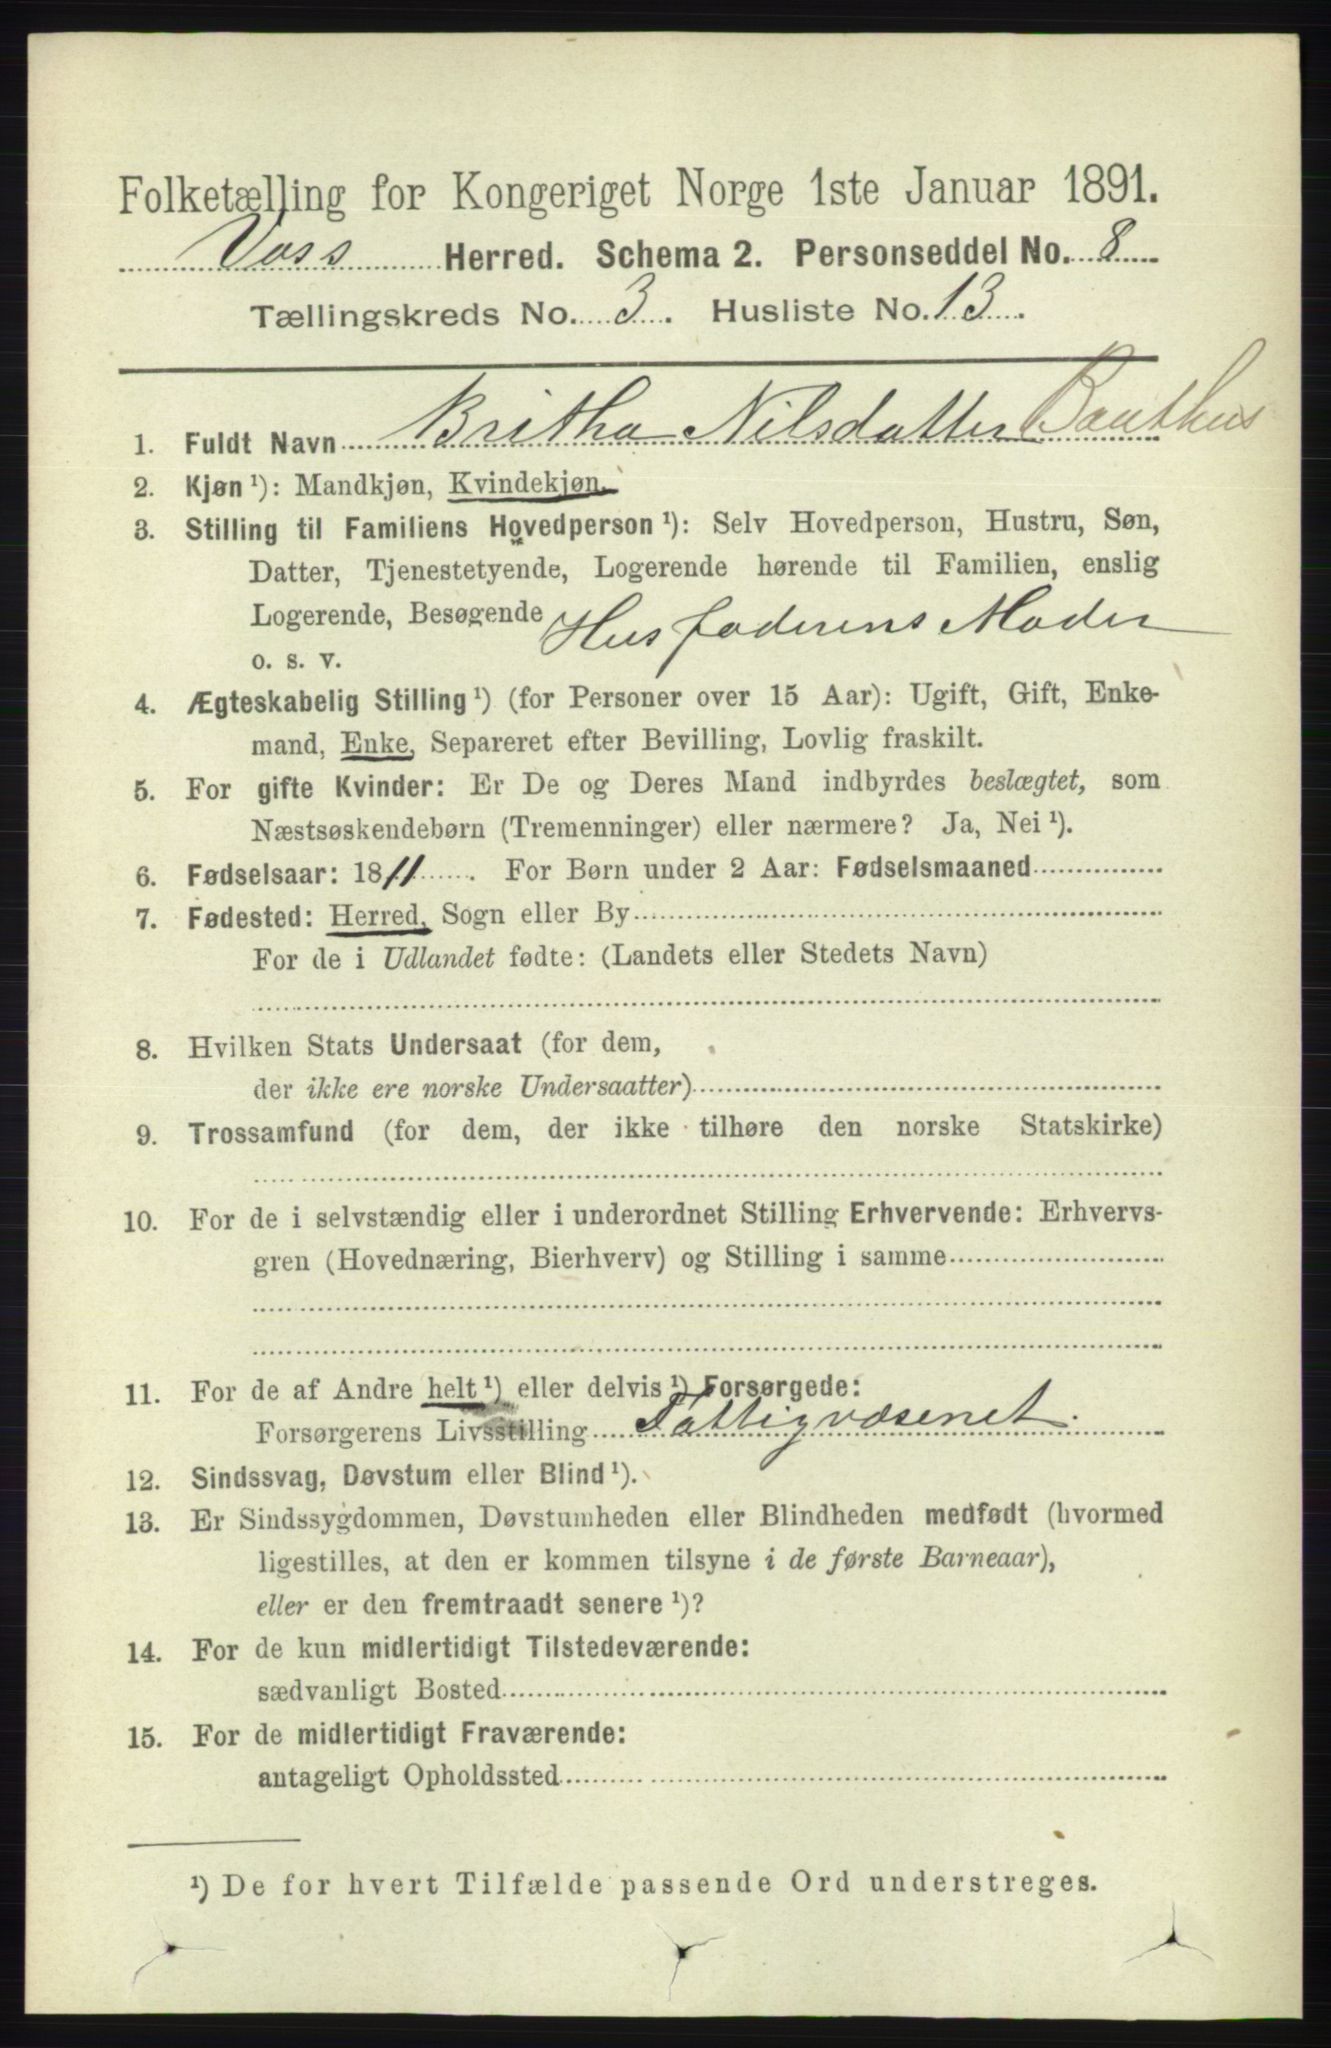 Folketælling for Kongeriget Norge 1ste Januar 1891.
Voss Herred. Schema 2. Personseddel No. 8
Tællingskreds No. 3. Husliste No. 13.
1. Fuldt Navn Britha Nilsdatter
2. Kjøn ¹): Mandkjøn, Kvindekjøn.
3. Stilling til Familiens Hovedperson ¹): Selv Hovedperson, Hustru, Søn,
Datter, Tjenestetyende, Logerende hørende til Familien, enslig
Logerende, Besøgende Husfaderens Moder
o. s. v.
4. Ægteskabelig Stilling ¹) (for Personer over 15 Aar): Ugift, Gift, Enke-
mand, Enke, Separeret efter Bevilling, Lovlig fraskilt.
5. For gifte Kvinder: Er De og Deres Mand indbyrdes beslægtet, som
Næstsøskendebørn (Tremenninger) eller nærmere? Ja, Nei ¹).
6. Fødselsaar: 1811. For Børn under 2 Aar: Fødselsmaaned
7. Fødested: Herred, Sogn eller By
For de i Udlandet fødte: (Landets eller Stedets Navn)
8. Hvilken Stats Undersaat (for dem,
der ikke ere norske Undersaatter)
9. Trossamfund (for dem, der ikke tilhøre den norske Statskirke)
10. For de i selvstændig eller i underordnet Stilling Erhvervende: Erhvervs-
gren (Hovednæring, Bierhverv) og Stilling i samme
11. For de af Andre helt ¹) eller delvis ¹) Forsørgede:
Forsørgerens Livsstilling Fattigvæsenet.
12. Sindssvag, Døvstum eller Blind ¹).
13. Er Sindssygdommen, Døvstumheden eller Blindheden medfødt (hvormed
ligestilles, at den er kommen tilsyne i de første Barneaar),
eller er den fremtraadt senere ¹)?
14. For de kun midlertidigt Tilstedeværende:
sædvanligt Bosted
15. For de midlertidigt Fraværende:
antageligt Opholdssted
¹) De for hvert Tilfælde passende Ord understreges.